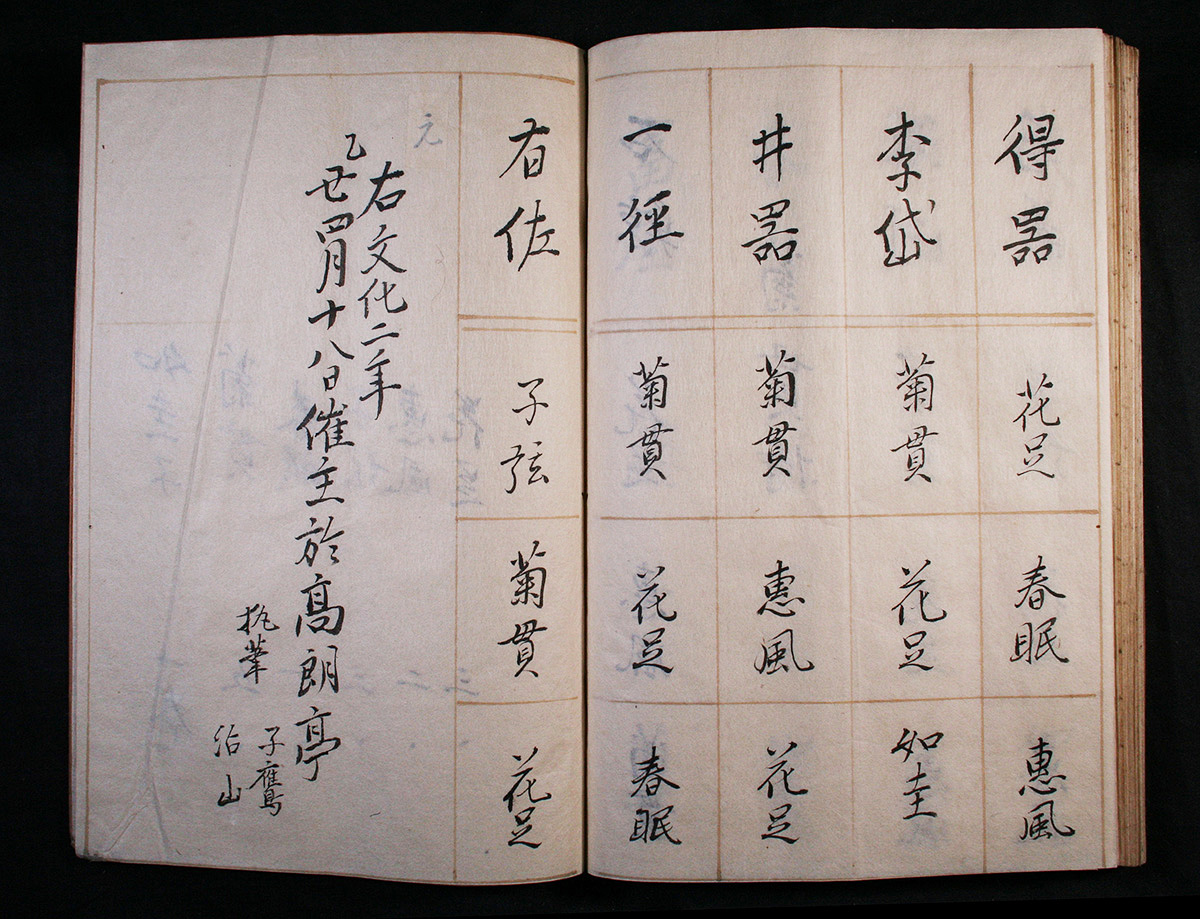 得器 花足 春眠 惠風
李岱 菊貫 花足 如圭
井器 菊貫 惠風 花足
一徑 菊貫 花足 春眠
有佐 子弦 菊貫 花足
元
右文化二年
乙丑四月十八日催主於高朗亭
執筆
子鷹
治山